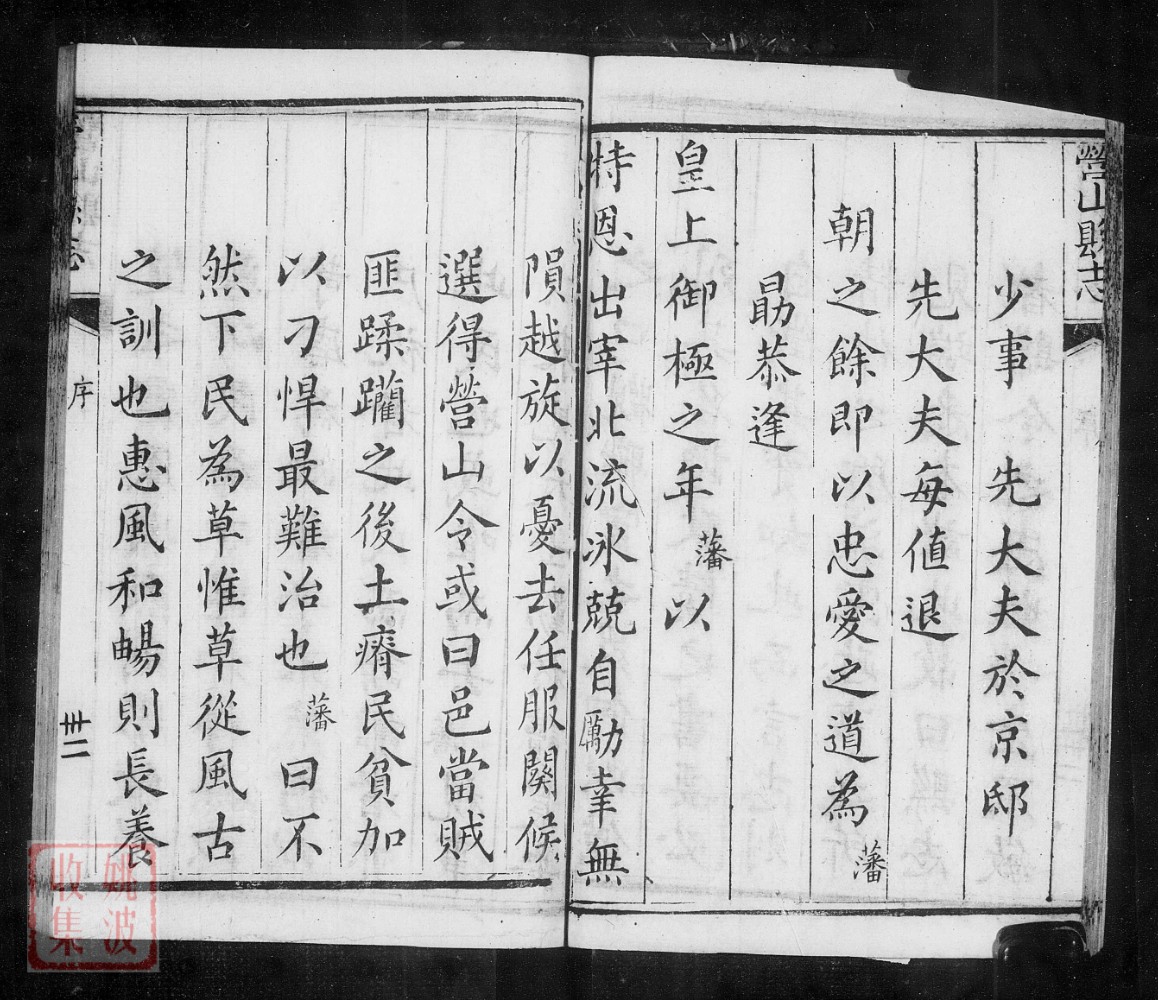 營山縣志
少事先大夫於京邸
先大夫每值退
朝之餘即以忠愛之道為藩
勗恭逢
皇上御極之年藩以
特恩出宰北流冰兢自勵幸無
隕越旋以憂去任服闋候
選得營山令或曰邑當賊
匪蹂躪之後土瘠民貧加
以刁悍最難治也藩曰不
然下民為草惟草從風古
之訓也惠風和暢則長養
序
卅二
姚波
收集